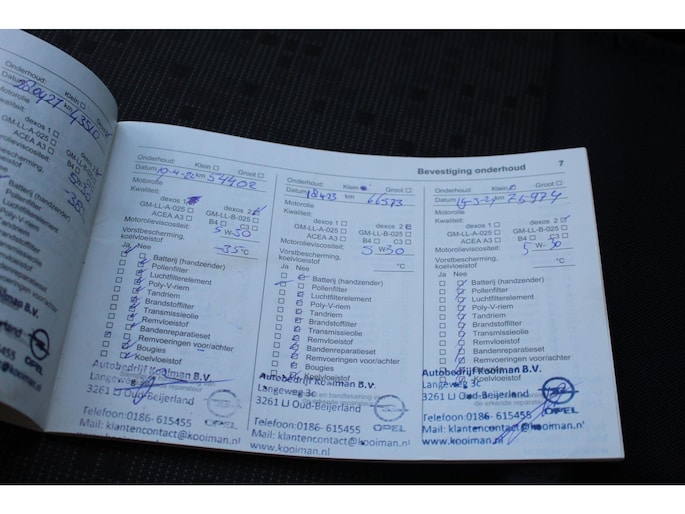 Onderhoud: Klein
Datum
Motorolie
Kwaliteit:
dexos 1
GM-LL-A-025
ACEA A3
Motorolieviscositeit:
Vorstbescherming,
koelvloeistof:
Kooiman B.V.
OPEL
Bevestiging onderhoud 7
Onderhoud: Klein Groot
Datum km 54402
Motorolie
Kwaliteit:
dexos 1 dexos 2
GM-LL-A-025 GM-LL-B-025
ACEA A3 B4 C3
Motorolieviscositeit: 5 W-30
Vorstbescherming,
koelvloeistof -35 °C
Ja Nee
Batterij (handzender)
Pollenfilter
Luchtfilterelement
Poly-V-riem
Tandriem
Brandstoffilter
Transmissieolie
Remvloeistof
Bandenreparatieset
Remvoeringen voor/achter
Bougies
Koelvloeistof
Autobedrijf Kooiman B.V.
Langeweg 3c
3261 LJ Oud-Beijerland
OPEL
Telefoon:0186- 615455
Mail: klantencontact@kooiman.nl
Onderhoud: Klein Groot
Datum km 66573
Motorolie
Kwaliteit:
dexos 1 dexos 2
GM-LL-A-025 GM-LL-B-025
ACEA A3 B4 C3
Motorolieviscositeit: 5 W-30
Vorstbescherming,
koelvloeistof °C
Ja Nee
Batterij (handzender)
Pollenfilter
Luchtfilterelement
Poly-V-riem
Tandriem
Brandstoffilter
Transmissieolie
Remvloeistof
Bandenreparatieset
Remvoeringen voor/achter
Bougies
Koelvloeistof
Autobedrijf Kooiman B.V.
Langeweg 3c
3261 LJ Oud-Beijerland
OPEL
Telefoon:0186- 615455
Mail: klantencontact@kooiman.nl
www.kooiman.nl
Onderhoud: Klein Groot
Datum km
Motorolie
Kwaliteit:
dexos 1 dexos 2
GM-LL-A-025 GM-LL-B-025
ACEA A3 B4 C3
Motorolieviscositeit: 5 W-30
Vorstbescherming,
koelvloeistof °C
Ja Nee
Batterij (handzender)
Pollenfilter
Luchtfilterelement
Poly-V-riem
Tandriem
Brandstoffilter
Transmissieolie
Remvloeistof
Bandenreparatieset
Remvoeringen voor/achter
Bougies
Koelvloeistof
Autobedrijf Kooiman B.V.
Langeweg 3c
3261 LJ Oud-Beijerland
OPEL
Telefoon:0186- 615455
Mail: klantencontact@kooiman.nl
www.kooiman.nl